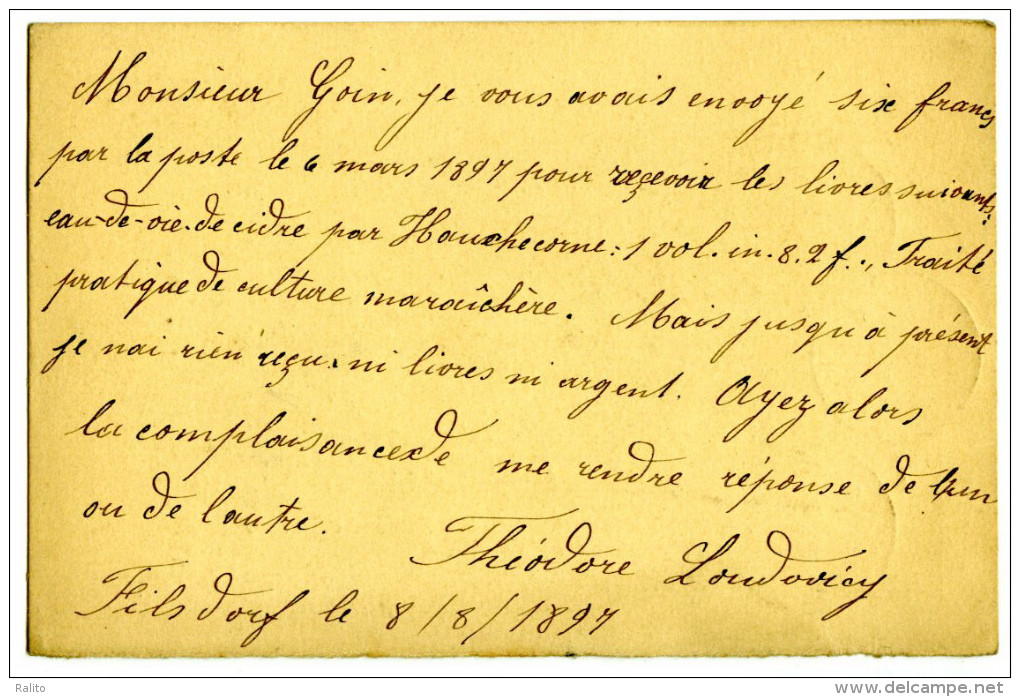 Monsieur Goin, je vous avais envoyé six francs
par la poste le 6 mars 1897 pour reçevoir les livres suivants:
eau-de-vie-de cidre par Hauchecorne: 1 vol. in. 8. 2 f., Traité
pratique de culture maraîchère. Mais jusqu'à présent
je nai rien reçu ni livres ni argent. Ayez alors
la complaisance de me rendre réponse de l'un
ou de l'autre.
Théodore Loudovicy
Filsdorf le 8/8/1897
Ralito
www.delcampe.net